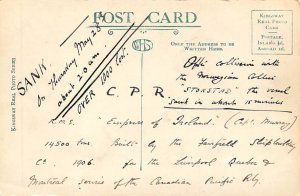 POST CARD
KINGSWAY
REAL PHOTO
CARD
POSTAGE
INLAND ½d
ABROAD 1d
ONLY THE ADDRESS TO BE
WRITTEN HERE.
WHS
KINGSWAY REAL PHOTO SERIES
SANK.
On Thursday May 28
about 2.0 a.m
OVER 1000 lost.
After collision with the
Norwegian Collier
"STORSTAD" the vessel
sank in about 15 minutes
C. P. R.
R.M.S. "Empress of Ireland" (Capt. Murray)
14,500 tons. Built by the Fairfield Shipbuilding
Co. 1906. for the Liverpool Quebec &
Montreal service of the Canadian Pacific Rly.